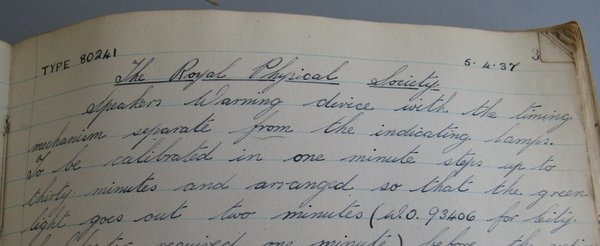 TYPE 80241 5.4.37 3
The Royal Physical Society
Speakers Warning device with the timing
mechanism separate from the indicating lamps.
To be calibrated in one minute steps up to
thirty minutes and arranged so that the green
light goes out two minutes (W.O. 93406 for City
required one minute) before the